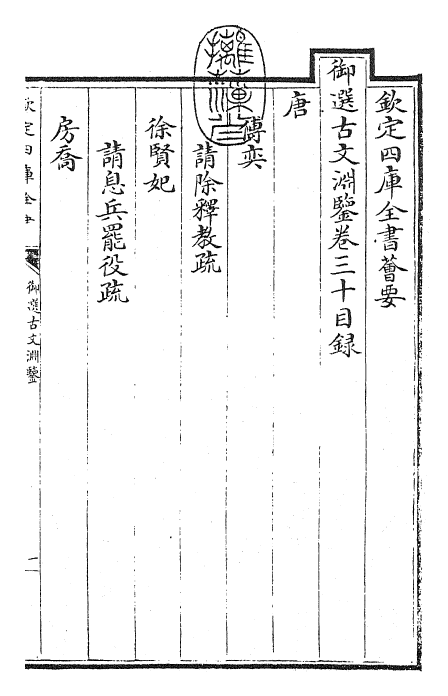 欽定四庫全書薈要
御選古文淵鑒卷三十目録
唐
傅奕
請除釋教疏
徐賢妃
請息兵罷役疏
房喬
欽定四庫全書
御選古文淵鑒
一
摛藻堂